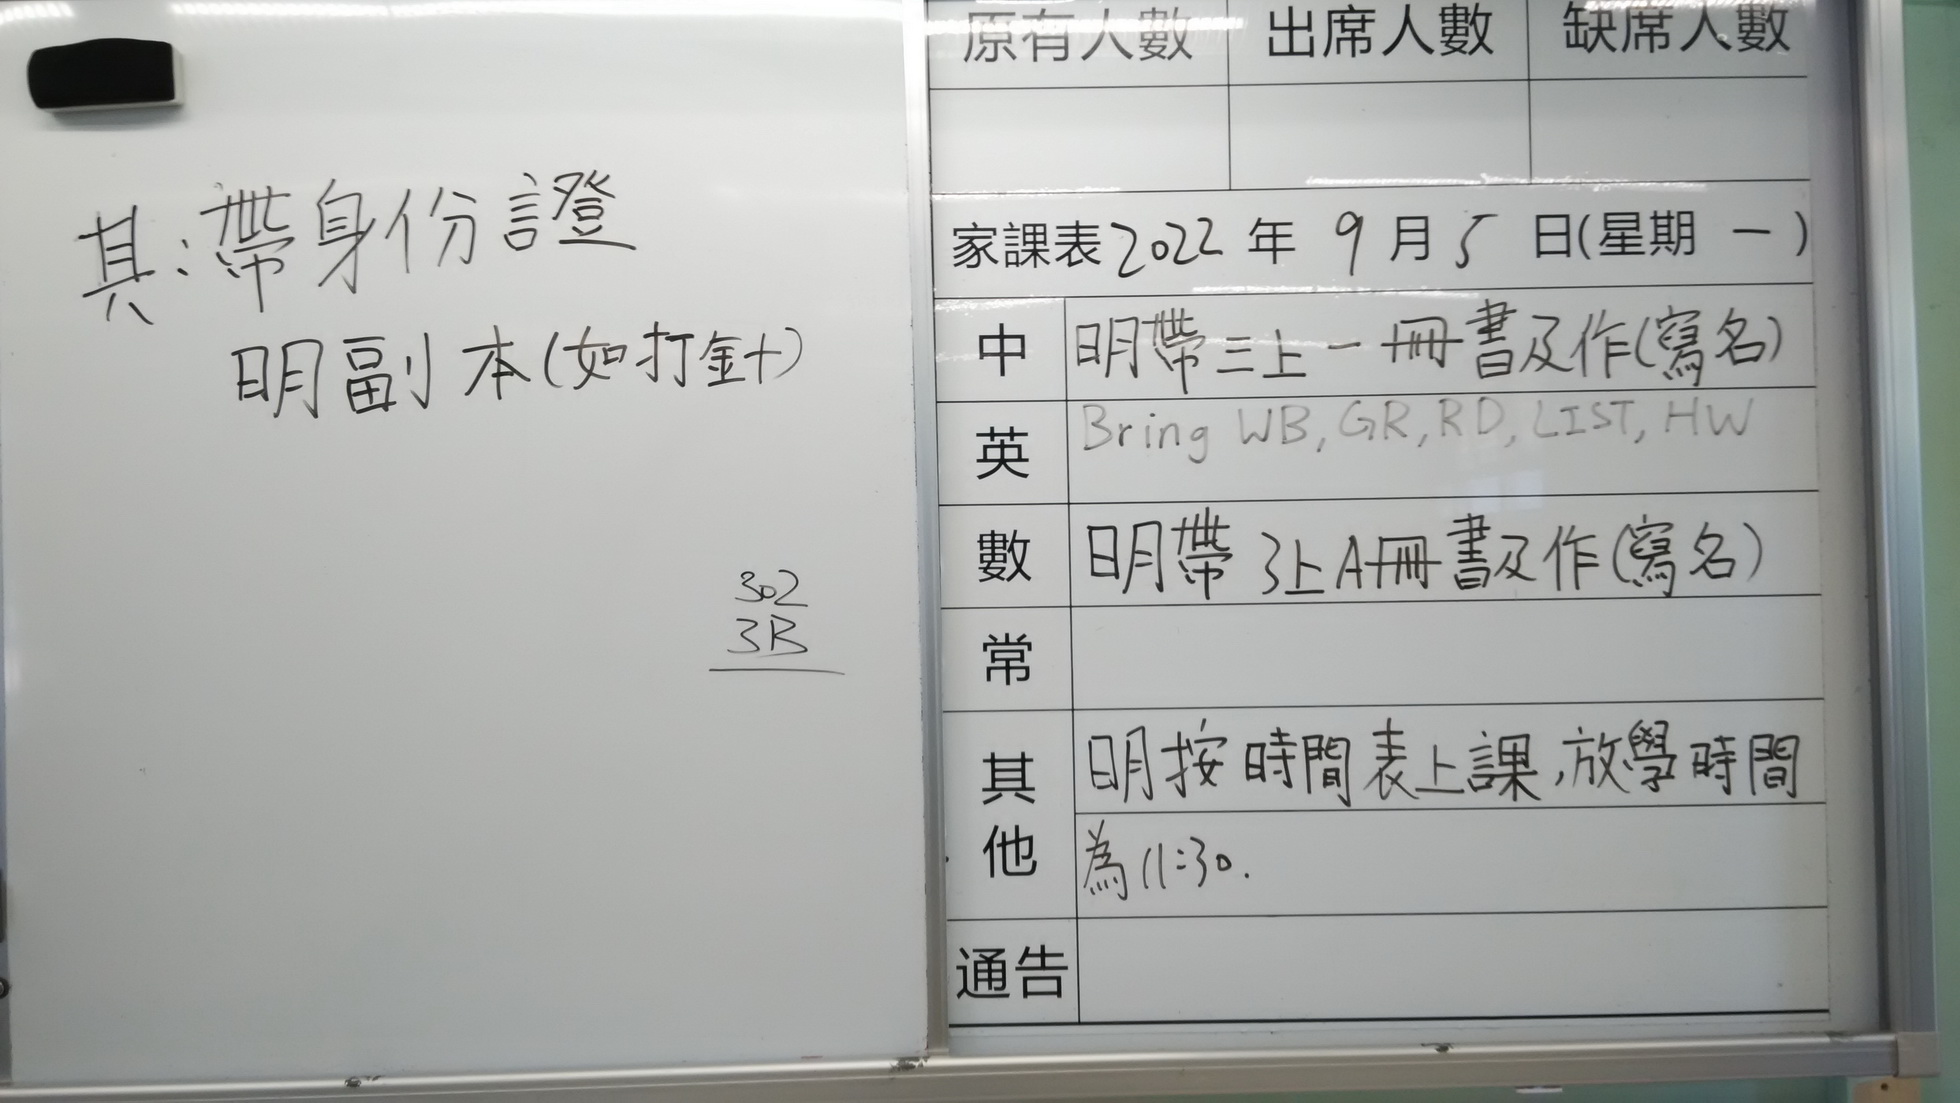 其:帶身份證
明副本(如打針)
302
3B
原有人數 出席人數 缺席人數
家課表2022年9月5日(星期一)
中 明帶三上一冊書及作(寫名)
英 Bring WB, GR, RD, LIST, HW
數 明帶3上A冊書及作(寫名)
常
其他 明按時間表上課,放學時間
為11:30.
通告